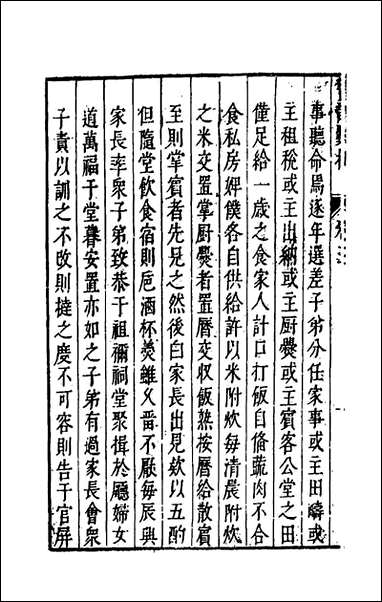 事聽命焉逐年選差子弟分任家事或主田疇或
主租稅或主出納或主厨爨或主賓客公堂之田
僅足給一歲之食家人計口打飯自偹蔬肉不合
食私房婢僕各自供給許以米附炊每清晨附炊
之米交置掌厨爨者置曆交収飯熟按曆給散賓
至則掌賓者先見之然後白家長出見欵以五酌
但隨堂飲食宿則卮酒杯羮雖乆畱不厭每辰興
家長率衆子弟致恭于祖禰祠堂聚揖於廳婦女
道萬福于堂暮安置亦如之子弟有過家長會衆
子責以訓之不改則撻之度不可容則告于官屏